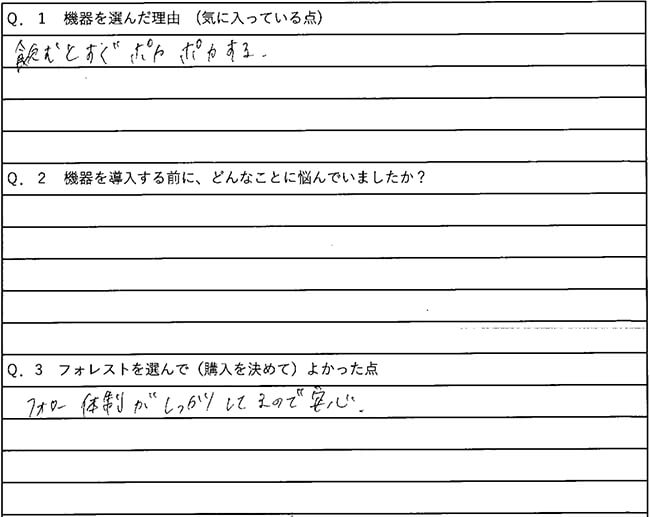 Q．1　機器を選んだ理由　（気に入っている点）
飲むとすぐポカポカする．
Q．2　機器を導入する前に、どんなことに悩んでいましたか？
Q．3　フォレストを選んで（購入を決めて）よかった点
フォロー体制がしっかりしてるので安心．